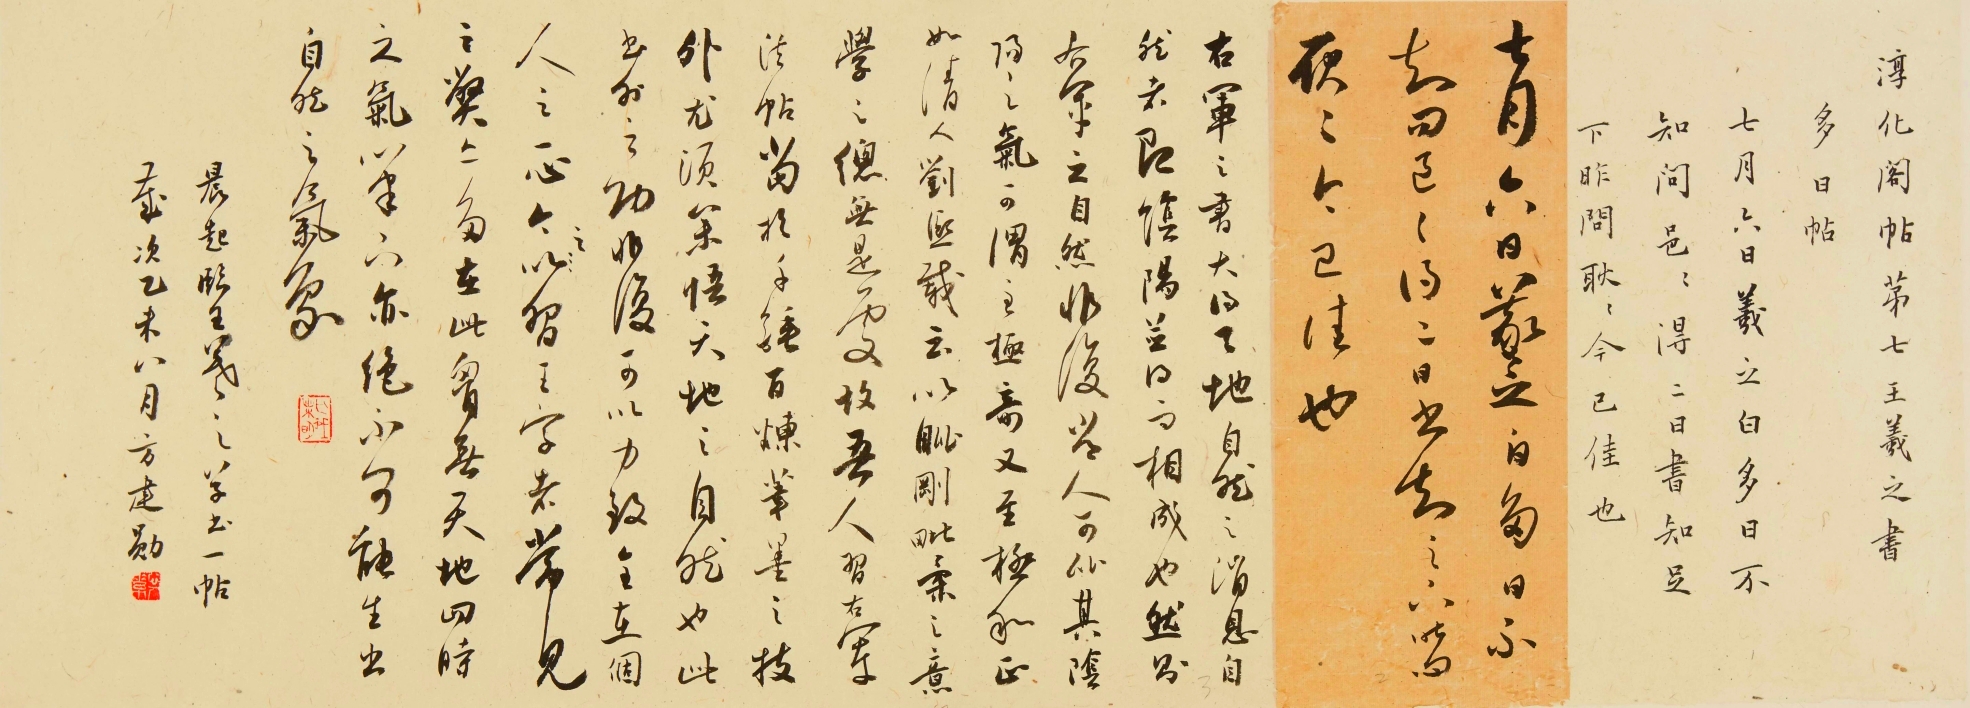 淳化閣帖第七王羲之書
多日帖
七月六日羲之白多日不
知問邑〻得二日書知足
下昨問耿〻今已佳也
七月六日羲之白多日不
知問邑〻得二日書知足下昨問
耿〻今已佳也
右軍之書大得天地自然之消息自
然者即陰陽並得而相成也然則
右軍之自然非復常人可仿其陰
陽之氣可謂之極奇又至極和正
如清人劉熙載云以毗剛毗柔之意
學之總無是處故吾人習右軍
法帖當於千錘百煉筆墨之技
外尤須深悟天地之自然也此
書外之功非復可以力致全在個
人之心今之以習王字者常見
之弊亦多在此胸無天地四時
之氣筆下亦絕不可能生出
自然之氣象
晨起臨王羲之草書一帖
歲次乙未八月方建勛